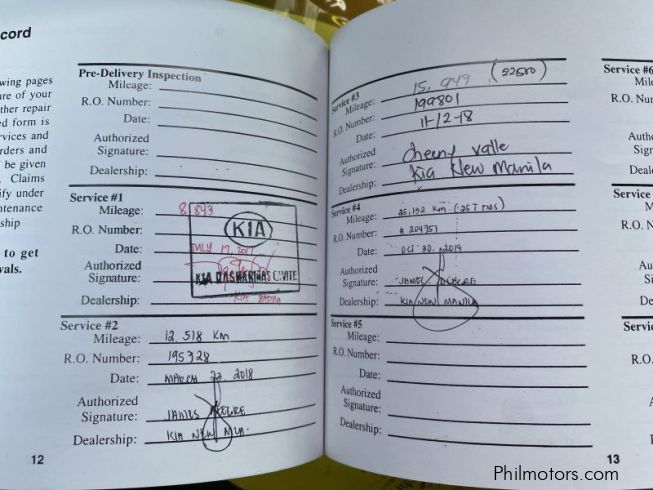 cord
wing pages
re of your
ther repair
ed form is
rvices and
rders and
be given
Claims
ify under
ntenance
ship
to get
vals.
Pre-Delivery Inspection
Mileage:
R.O. Number:
Date:
Authorized
Signature:
Dealership:
Service #1
Mileage: 8,843
R.O. Number:
KIA
Date: JULY 17, 2017
Authorized
Signature:
KIA DASMARINAS CAVITE
Dealership: KIA DASMA
Service #2
Mileage: 12,518 KM
R.O. Number: 195328
Date: MARCH 22, 2018
Authorized
Signature: JAMES
Dealership: KIA NEW MLA.
12
Service #3
Mileage: 15,949 (22500)
R.O. Number: 199801
Date: 11-12-18
Authorized
Signature: cheeny valle
Dealership: Kia New Manila
Service #4
Mileage: 25,132 KM
R.O. Number: # 204751
Date: OCT 30, 2019
Authorized
Signature: JAMES
Dealership: KIA NEW MANILA
Service #5
Mileage:
R.O. Number:
Date:
Authorized
Signature:
Dealership:
Service #6
Mile
R.O. Nu
Auth
Sign
Deale
Service
M
R.O. N
Auth
Sig
Deal
Servic
R.O.
A
S
De
13
Philmotors.com